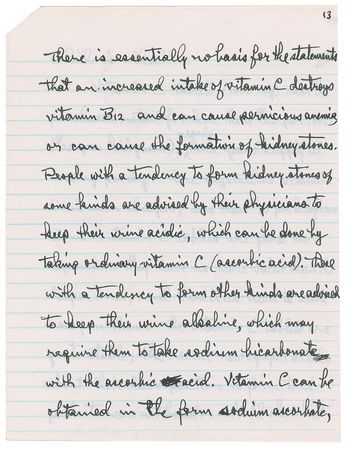 13
There is essentially no basis for the statements
that an increased intake of vitamin C destroys
vitamin B12 and can cause pernicious anemia
or can cause the formation of kidney stones.
People with a tendency to form kidney stones of
some kinds are advised by their physicians to
keep their urine acidic, which can be done by
taking ordinary vitamin C (ascorbic acid). Those
with a tendency to form other kinds are advised
to keep their urine alkaline, which may
require them to take sodium bicarbonate
with the ascorbic acid. Vitamin C can be
obtained in the form sodium ascorbate,